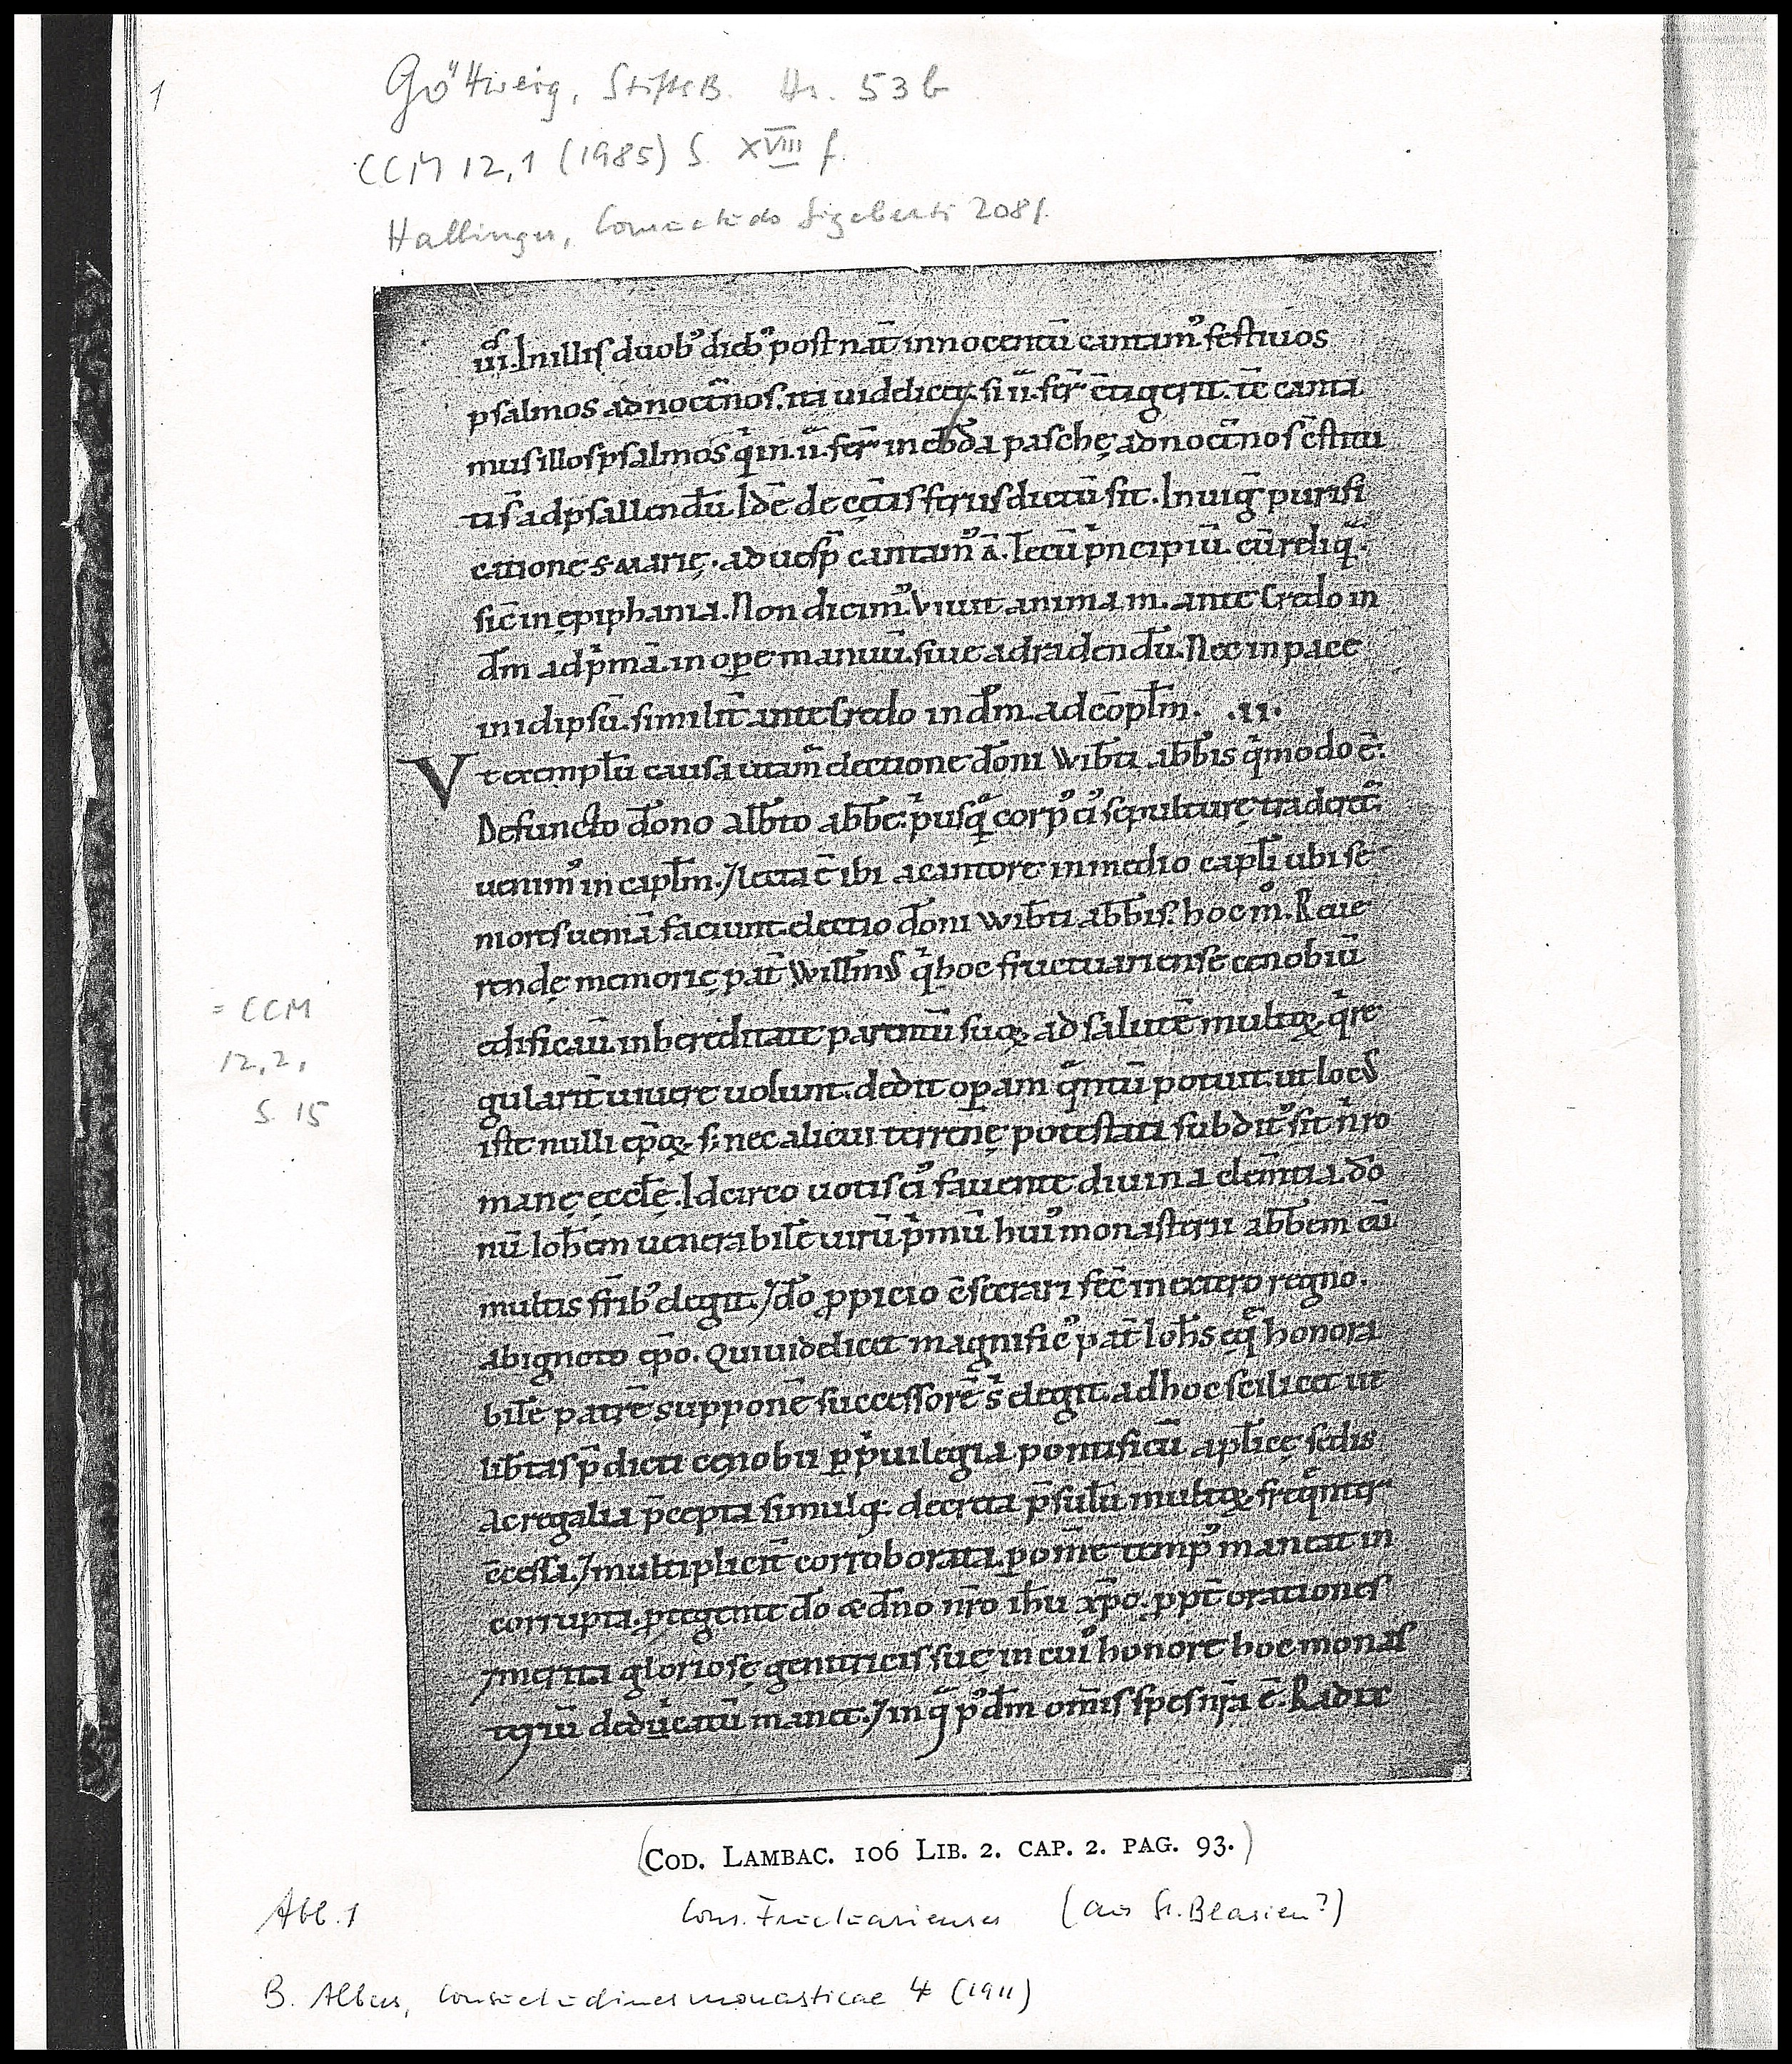 1
Göttweig, StiftsB. Hs. 53b
CCM 12,1 (1985) S. XVIII f.
Hallinger, Consuetudo Sigeberti 208f.
iiii. In illis duob' dieb' post nat̄ innocentū cantam' festiuos
psalmos ad noct̄nos. ita uidelicet. si .ii. fer̄ c̄tigerit. t̄c canta
mus illos psalmos qͥ in .ii. fer̄ in ebd̄a paschę ad noct̄nos c̄stitu
ti s̄ ad psallend̄u. Idē de cęt̄is feriis dictū sit. In uiḡ purifi
catione S MARIĘ. ad uesp̄ cantam' ā. Tecū pͥncipiū. cū reliq̄.
sic̄ in epiphania. Non dicim' Viuit anima m. ante Credo in
d̄m ad pͥmā. in ope manuū. siue ad radend̄u. Nec in pace
in idipsū. similit̄ ante Credo in d̄m. ad cōpl̄m. .II.
Vt exempl̄u causa utam̄ electione dōni Wib̄ti abb̄is qͥmodo ē:
Defuncto dōno alb̄to abb̄e. pͥusqͣ corp' ei' sepulturę traderet̄.
uenim' in capl̄m. ⁊ lecta ē ibi a cantore in medio capl̄i ubi se
niores ueniā faciunt. electio dōni wib̄ti abb̄is. hoc m̊. Reue
rendę memorię pat̄ Will̄mus qͥ hoc fructuariense cenobiū
edificauit in hereditate parentū suoꝝ ad salutē multoꝝ qͥ re
gularit̄ uiuere uolunt. dedit opam qͣntū potuit. ut locus
iste nulli ep̄oꝝ s; nec alicui terrenę potestati subdit' sit nͥ ro
manę eccl̄ę. Idcirco uotis ei' fauente diuina clem̄tia. dō
nū Ioh̄em uenerabilē uirū pͥmū hui' monasterii abb̄em cū
multis fr̄ib' elegit. ⁊ dō ꝓpicio c̄secrari fec̄ in extero regno.
ab ignoto ep̄o. Qui uidelicet magnific' pat̄ Ioh̄s eqͣ honora
bilē patrē supponē successorē s̄ elegit. ad hoc scilicet ut
lib̄tas p̄dicti cęnobii ꝑ pͥuilegia pontificū apl̄icę sedis
ac regalia p̄cepta simulq; decreta p̄sul̄u multoꝝ freqͣnter
c̄cessa. ⁊ multiplicit̄ corroborata. ꝑ om̄e temp' maneat in
corrupta. ꝓtegente dō & d̄no nr̄o ih̄u xp̄o. ꝓpt̄ orationes
⁊ merita gloriosę genitricis suę in cui' honore hoc monas
teriū dedicatū manet. ⁊ in qͣ p' d̄m om̄is spes nr̄a ē. Radix
= CCM
12,2,
S. 15
(COD. LAMBAC. 106 LIB. 2. CAP. 2. PAG. 93.)
Abb. 1 Cons. Fructuarienses (aus St. Blasien?)
B. Albers, Consuetudines monasticae 4 (1911)